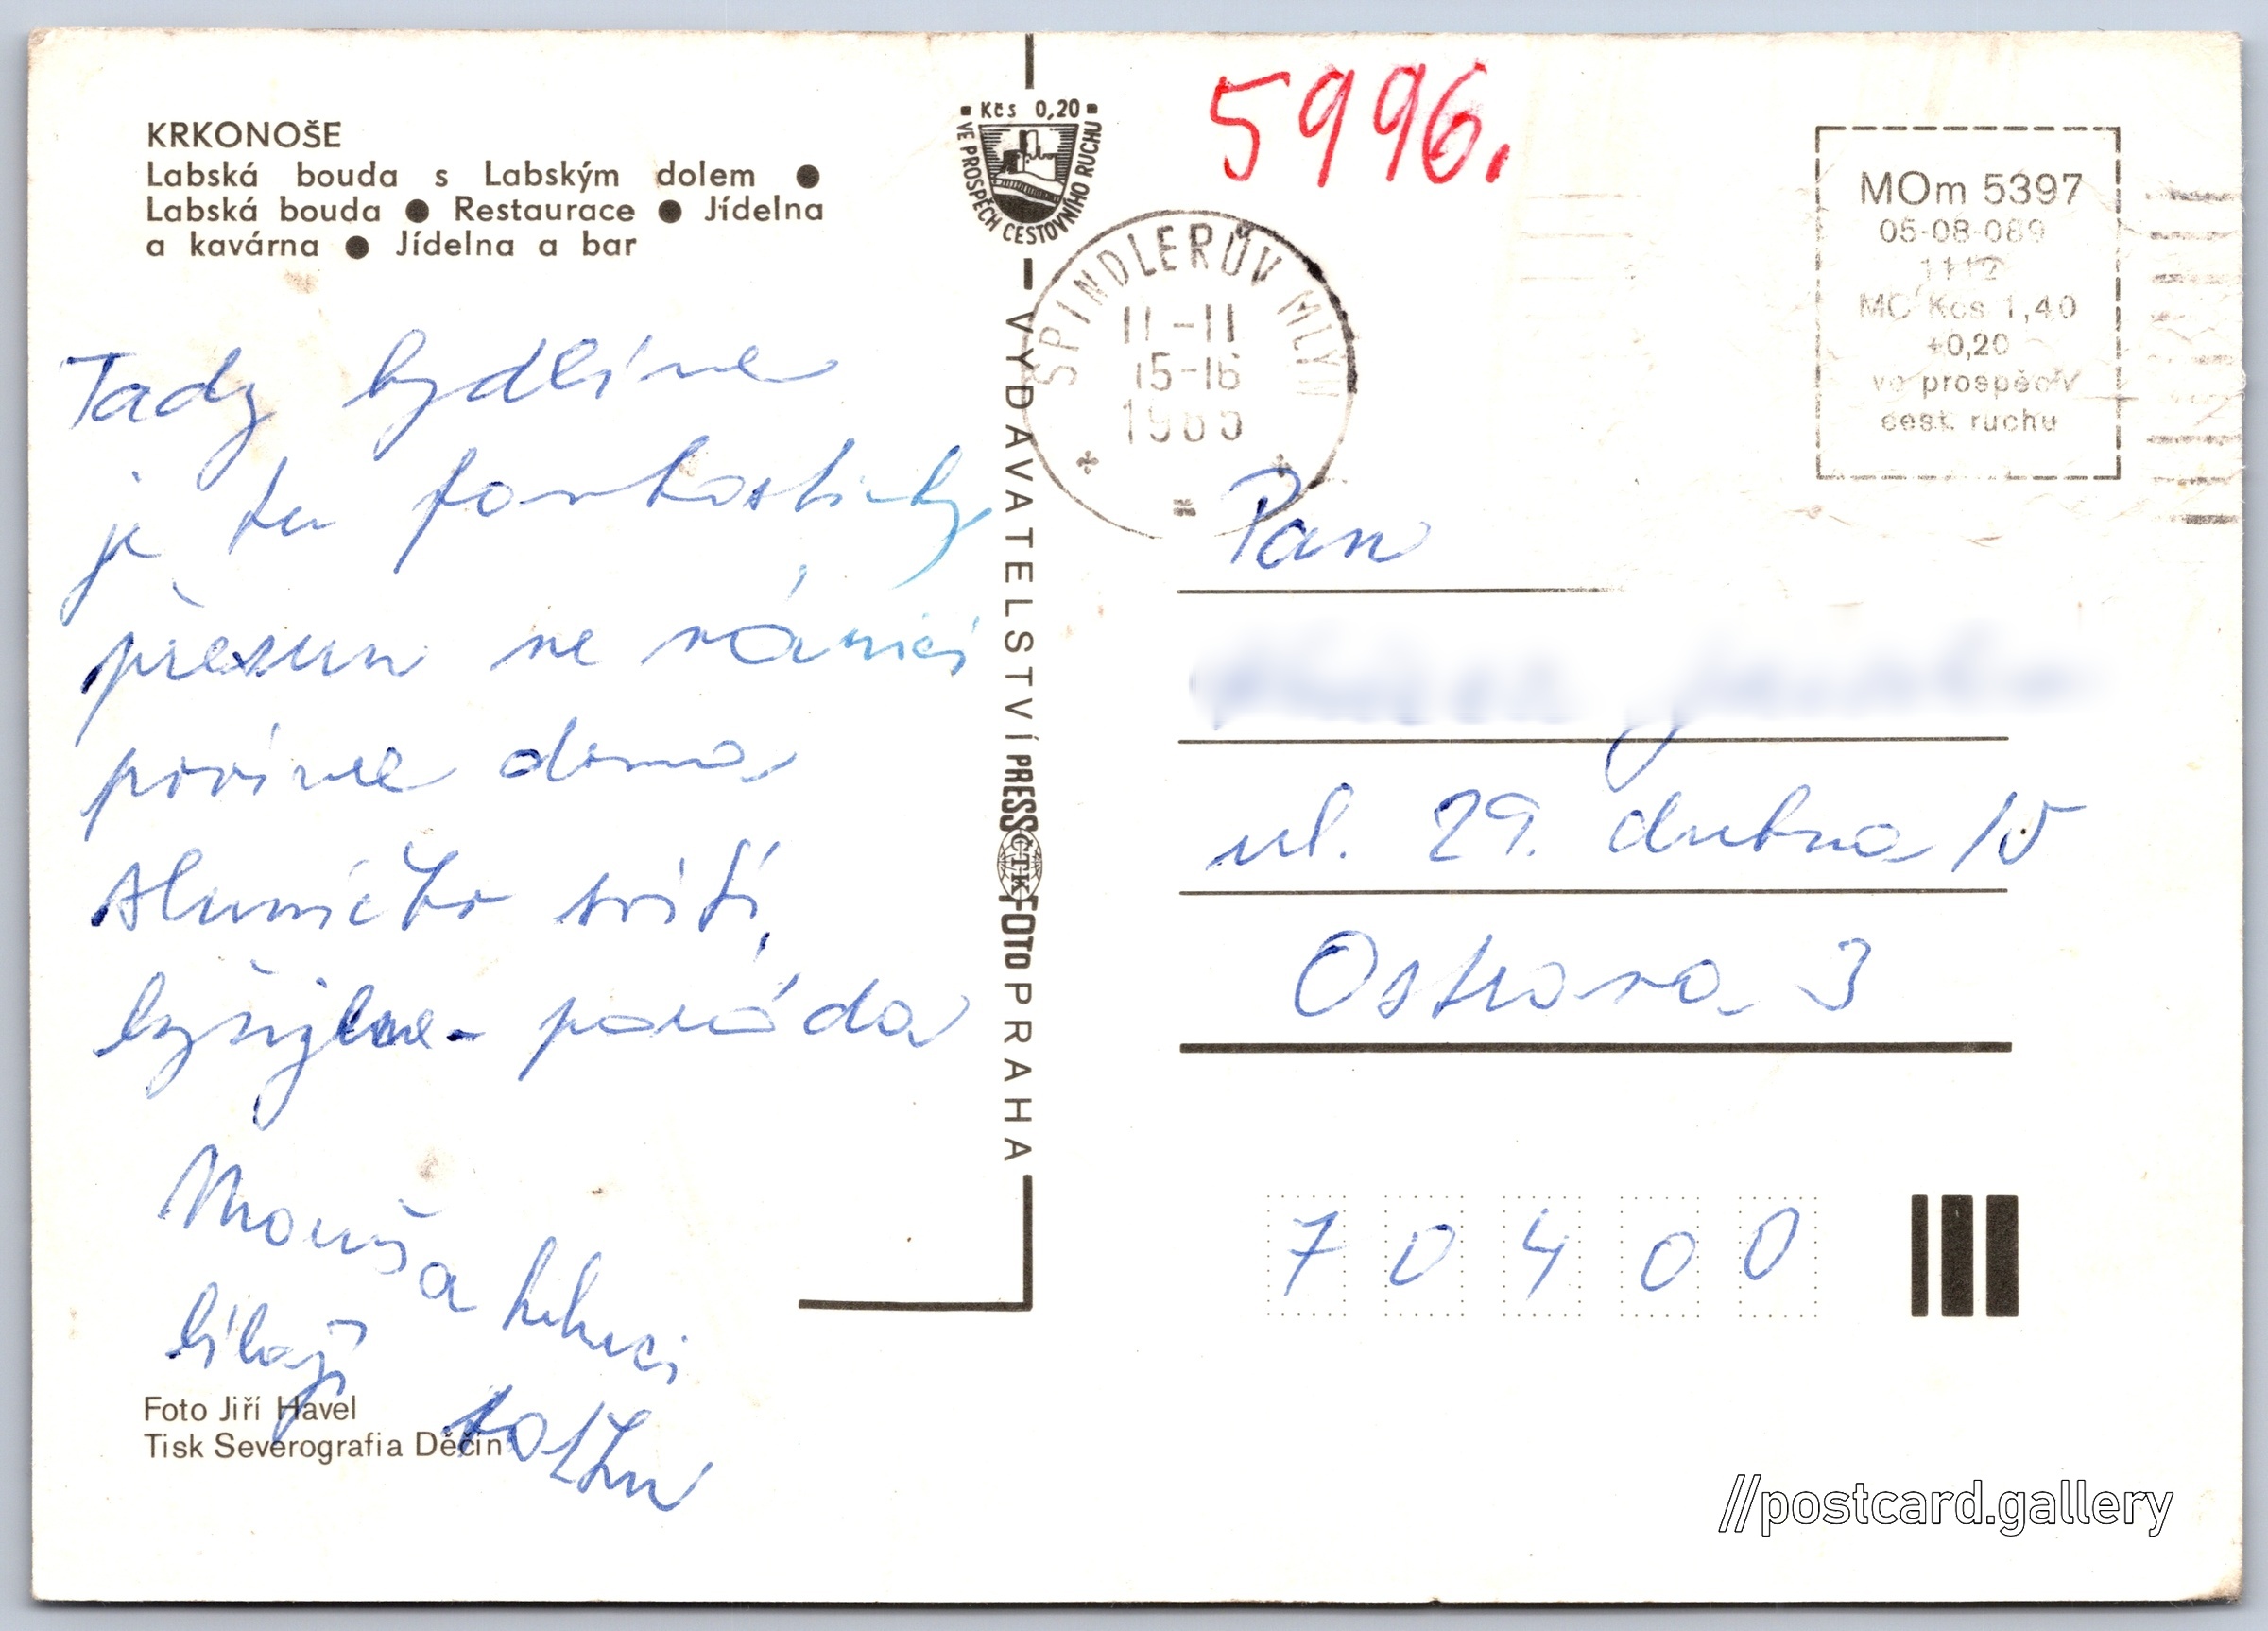 KRKONOŠE
Labská bouda s Labským dolem ●
Labská bouda ● Restaurace ● Jídelna
a kavárna ● Jídelna a bar
Kčs 0,20
VE PROSPĚCH CESTOVNÍHO RUCHU
5996.
MOm 5397
05-08-089
1112
MC Kčs 1,40
+0,20
ve prospěch
cest. ruchu
SPINDLERŮV MLÝN
11-11
15-16
Tady bydlíme
je tu fantasticky
přesun se
prvíme doma
sluníčko svítí,
lyžujeme - paráda
a kluci
Foto Jiří Havel
Tisk Severografia Děčín
VYDAVATELSTVÍ PRESSFOTO PRAHA
ČTK
Pan
ul. 29. dubna
Ostrava 3
70400
//postcard.gallery